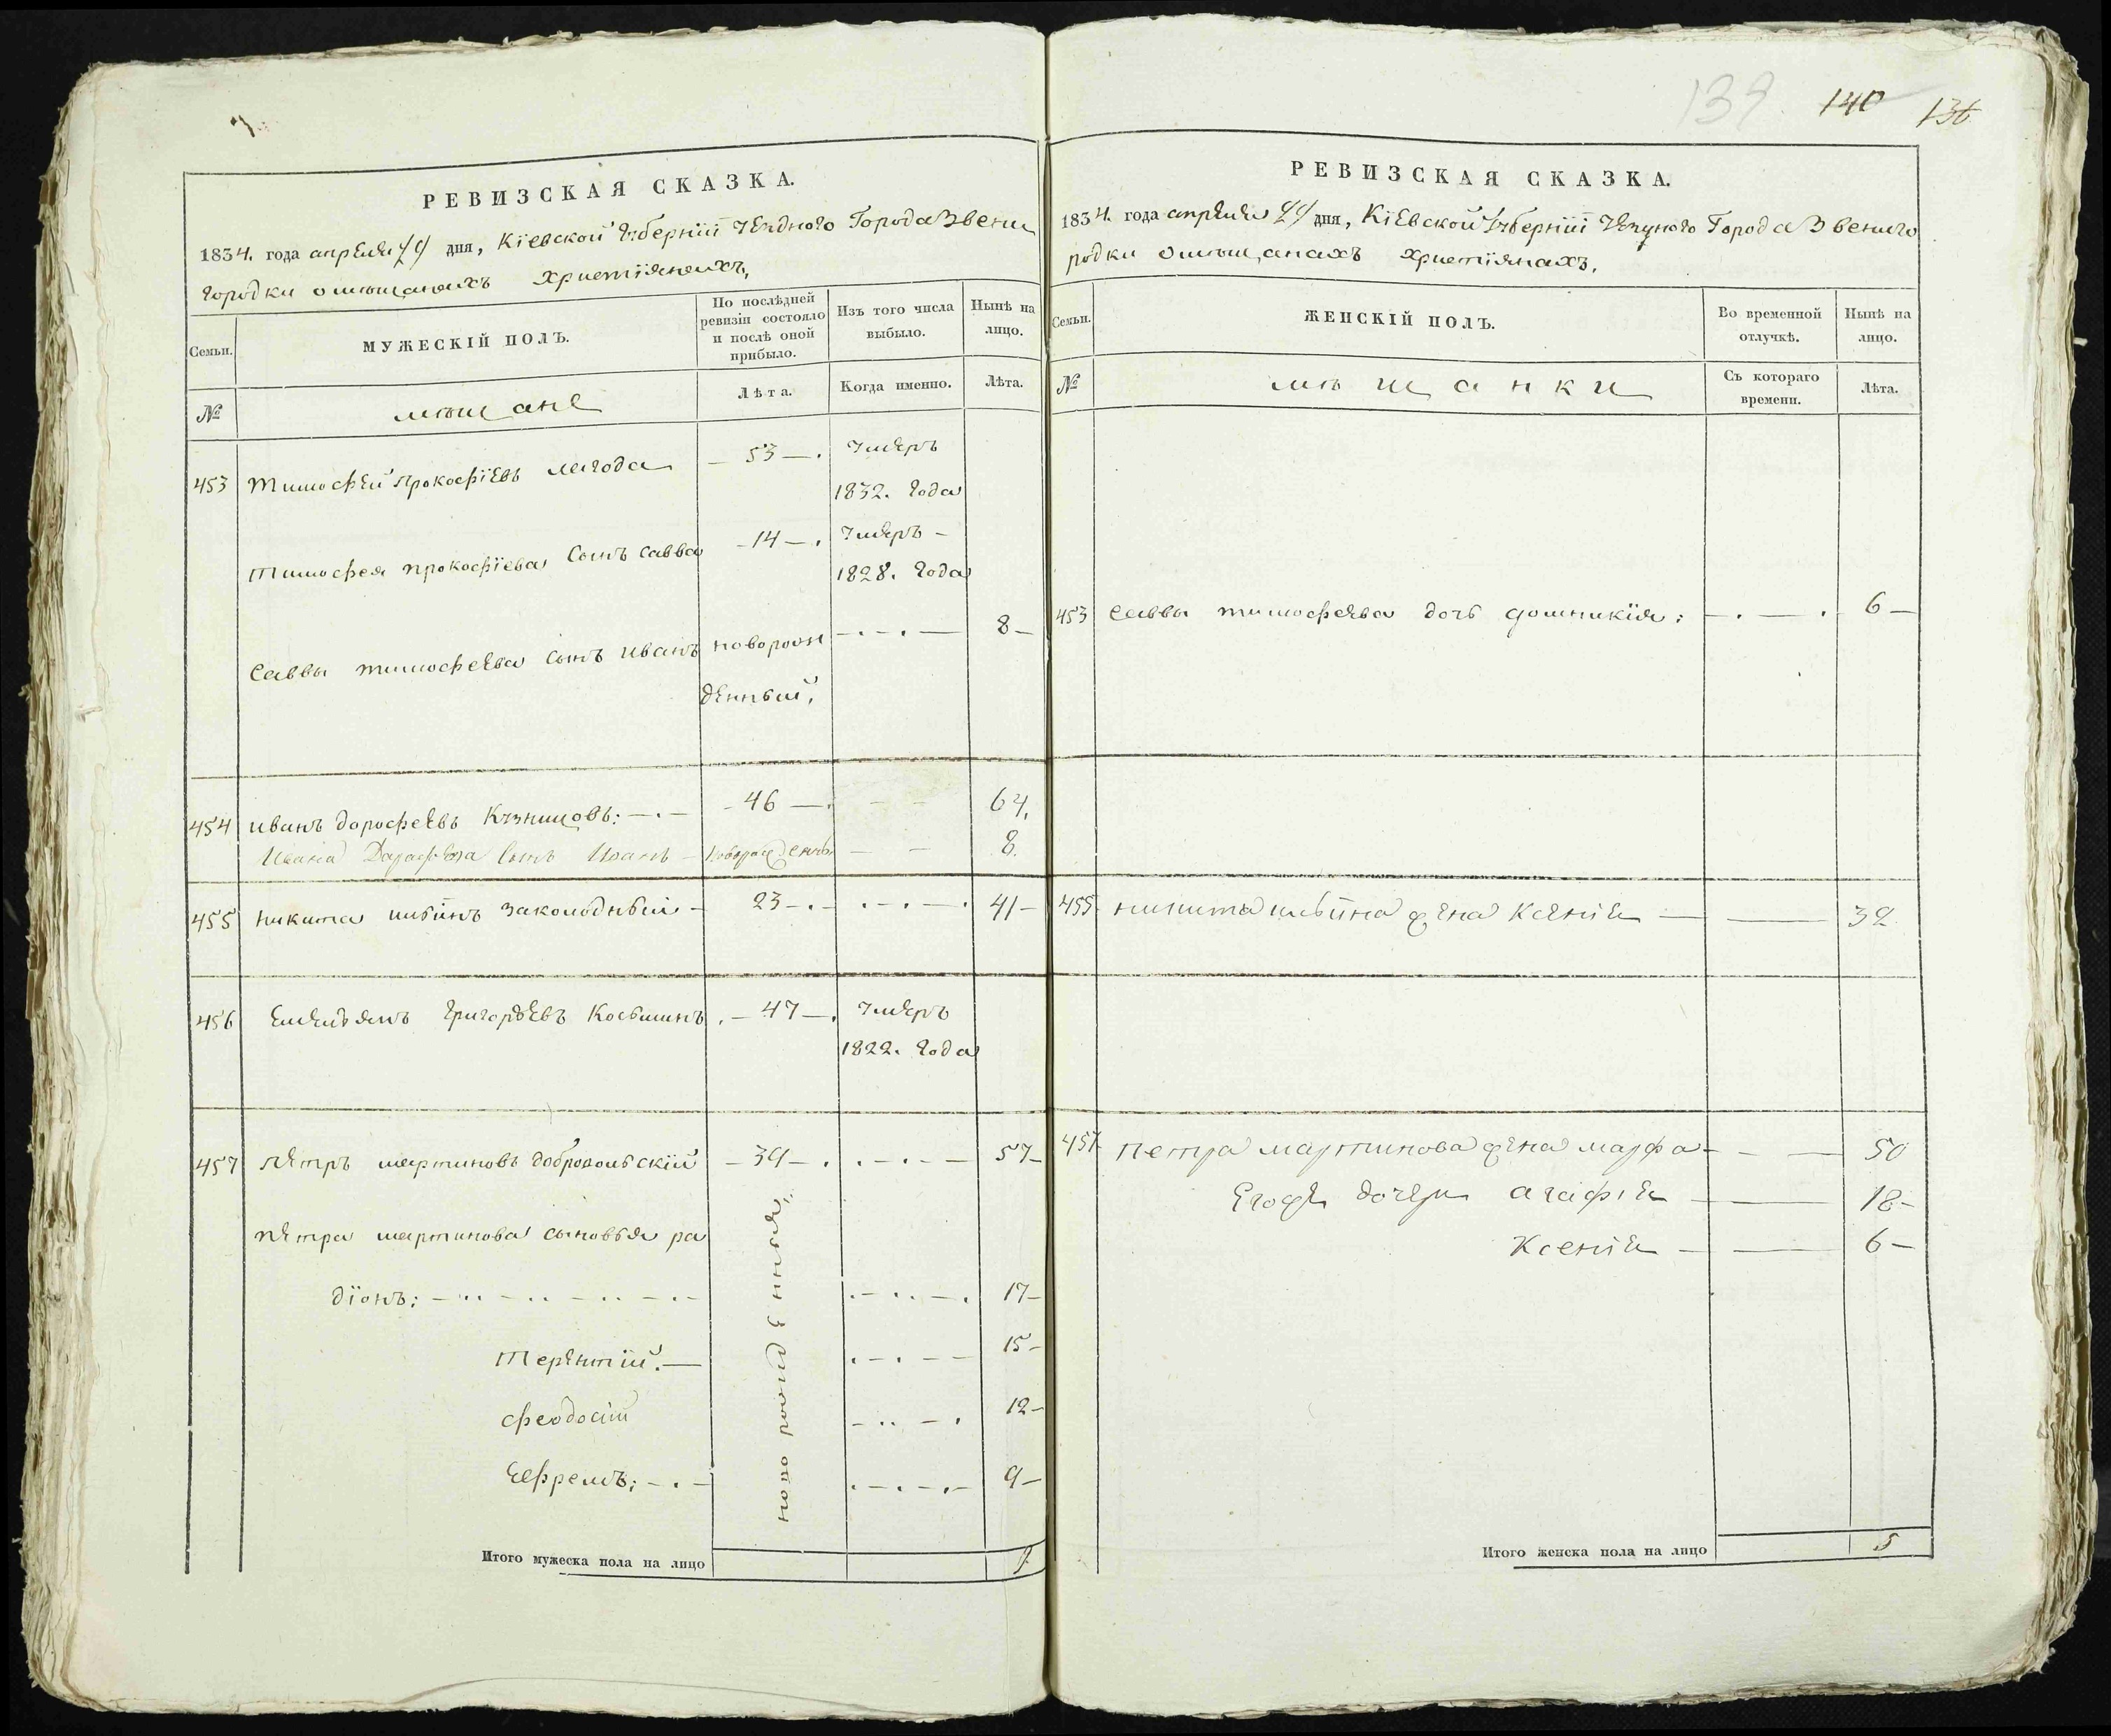 139 140 136
РЕВИЗСКАЯ СКАЗКА.
1834. года апреля дня, Кіевской Губерніи Уезднаго Города Звени
городки о мѣщанахъ христіянахъ,
Семьи.
МУЖЕСКІЙ ПОЛЪ.
По послѣдней ревизіи состояло и послѣ оной прибыло.
Изъ того числа выбыло.
Нынѣ на лицо.
№
мѣщане
Лѣта.
Когда именно.
Лѣта.
453 Тимофей Прокофіевъ Лагода — 53 —. Умеръ
1832. Года
Тимофея Прокофіева Сынъ Савва — 14 —. Умеръ —
1828. Года
Саввы Тимофеева Сынъ Иванъ новорож 8 —
денный,
454 Иванъ Дорофеевъ Кузницовъ: — 46 —. 64,
Ивана Дарафеева Сынъ Иванъ — Новорожденъ — — 8.
455 Никита Ильинъ Заколодный — 23 — 41 —
456 Емельянъ Григорьевъ Косьминъ — 47 —. Умеръ
1822. Года
457 Петръ Мартиновъ Добровольскій — 39 —. 57 —
Петра Мартинова сыновья Ра
діонъ: 17 —
новорожденныя,
Терентій. — 15 —
Феодосій 12 —
Ефремъ: 9 —
Итого мужеска пола на лицо 9
РЕВИЗСКАЯ СКАЗКА.
1834. года апреля дня, Кіевской Губерніи Уезднаго Города Звениго
родки о мѣщанахъ христіянахъ.
Семьи.
ЖЕНСКІЙ ПОЛЪ.
Во временной отлучкѣ.
Нынѣ на лицо.
№
мѣщанки
Съ котораго времени.
Лѣта.
453 Саввы Тимофеева дочь Домникія: 6 —
455 Никиты Ильина жена Ксенія — 32
457 Петра Мартинова жена Марфа — 50
Егоже дочери Агафія — 18 —
Ксенія — 6 —
Итого женска пола на лицо 5